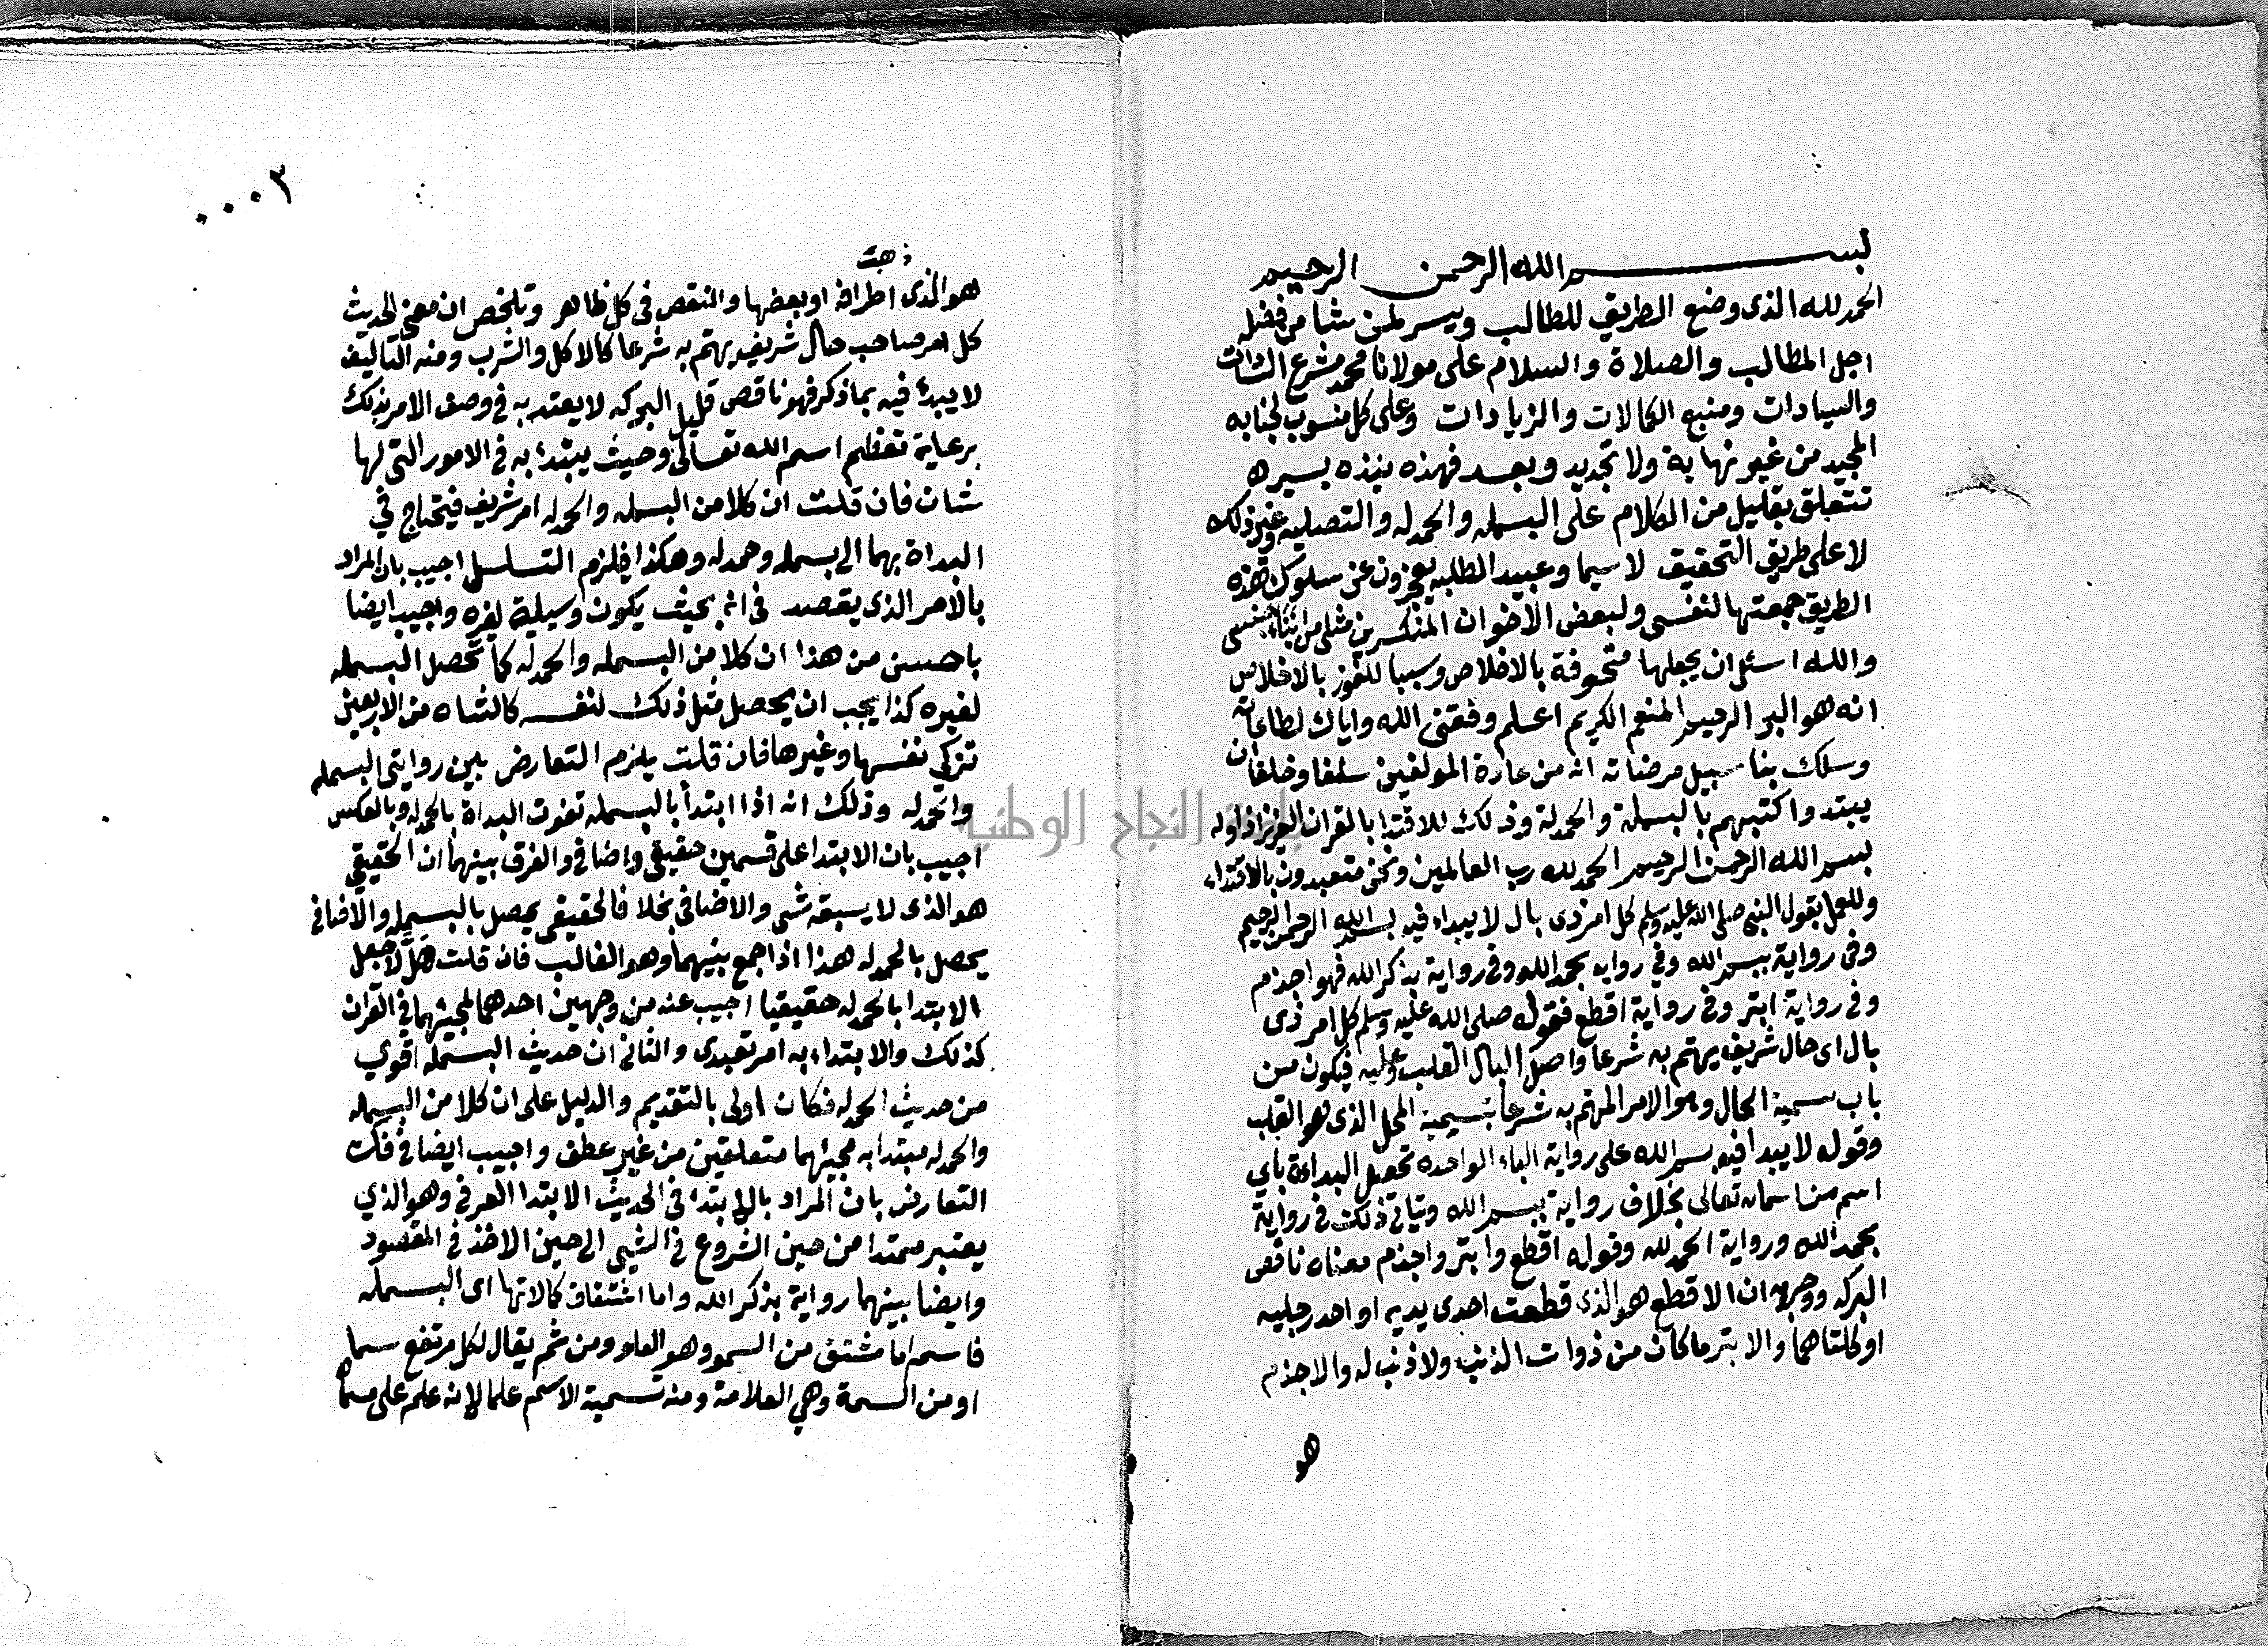 بسم الله الرحمن الرحيم
الحمد لله الذى وضع الطريق للطالب ويسر لمن شا من فضله
اجل المطالب والصلاة والسلام على مولانا محمد مشرع
والسيادات ومنبع الكمالات والزيادات وعلى كل منسوب لجنابه
المجيد من غير نهاية ولا تحديد وبعد فهذه نبذه يسيره
تتعلق بقليل من الكلام على البسمله والحمدله والتصليه وغير ذلك
لا على طريق التحقيق لا سيما وعبيد الطلبه يعجزون عن سلوك هذه
الطريق جمعتها لنفسى ولبعض الاخوان المنكسرين مثلى من ابناء جنسى
والله اسئل ان يجعلها محفوفة بالاخلاص وسببا للفوز بالاخلاص
انه هو البر الرحيم المنعم الكريم اعلم وفقنى الله واياك لطاعاته
وسلك بنا سبيل مرضاته انه من عادة المولفين سلفا وخلفا ان
يبتدوا كتبهم بالبسملة والحمدلة وذلك للاقتدا بالقران العزيز اذ اوله
بسم الله الرحمن الرحيم الحمد لله رب العالمين ونحن متعبدون بالاقتداء
وللعمل بقول النبى صلى الله عليه وسلم كل امر ذى بال لا يبداء فيه ببسم الله الرحمن الرحيم
وفى رواية ببسم الله وفي روايه بحمد الله وفى رواية بذكر الله فهو اجذم
وفى رواية ابتر وفى رواية اقطع فقوله صلى الله عليه وسلم كل امر ذى
بال اى حال شريف يهتم به شرعا واصل البال القلب وعليه فيكون من
باب تسمية الحال وهو الامر المهتم به شرعا بتسمية المحل الذى هو القلب
وقوله لا يبدا فيه بسم الله على رواية الباء الواحده تحصل البداءة باي
اسم من اسمائه تعالى بخلاف رواية ببسم الله وياتى ذلك فى رواية
بحمد الله ورواية الحمد لله وقوله اقطع وابتر واجذم معناه ناقص
البركه ووجهه ان الاقطع هو الذى قطعت احدى يديه او احد رجليه
او كلتاهما والابتر ما كان من ذوات الذنب ولا ذنب له والاجذم
هو
٠٠٠٢
هو الذى اطرافه او بعضها والنقص فى كل ظاهر وتلخص ان معنى الحديث
كل امر صاحب حال شريف يهتم به شرعا كالاكل والشرب ومنه التاليف
لا يبدئ فيه بما ذكر فهو ناقص قليل البركه لا يعتد به فى وصف الامر بذلك
برعاية تعظيم اسم الله تعالى وحيث يبتدء به فى الامور التى لها
شان فان قلت ان كلا من البسمله والحمدله امر شريف فيحتاج في
البداة بهما الى بسمله وحمدله وهكذا فيلزم التسلسل اجيب بان المراد
بالامر الذى يقصد فى بحيث يكون وسيلة لغيره واجيب ايضا
باحسن من هذا ان كلا من البسمله والحمدله كما تحصل البسمله
لغيره كذا يجب ان يحصل مثل ذلك لنفسه كالشاه من الاربعين
تزكى نفسها وغيرها فان قلت يلزم التعارض بين روايتى البسمله
والحمدله وذلك انه اذا ابتدأ بالبسمله تفوت البداة بالحمدله وبالعكس
اجيب بان الابتدا على قسمين حقيقى واضافى والفرق بينهما ان الحقيقي
هو الذى لا يسبقه شى والاضافى بخلا فالحقيقى يحصل بالبسمله والاضافى
يحصل بالحمدله هذا اذا جمع بينهما وهو الغالب فان قلت هلا جعل
الابتدا بالحمدله حقيقيا اجيب عنه من وجهين احدهما لمجيئهما فى القرآن
كذلك والابتداء به امر تعبدى والثانى ان حديث البسمله اقوي
من حديث الحمدله فكان اولى بالتقديم والدليل على ان كلا من البسمله
والحمدله مبتدا به مجيئهما متعلقين من غير عطف واجيب ايضا فى فك
التعارض بان المراد بالابتدء فى الحديث الابتدا العرفى وهو الذي
يعتبر ممتدا من حين الشروع فى الشيى الى حين الاخذ فى المقصود
وايضا بينهما رواية بذكر الله واما اشتقاق كمالاتها اى البسمله
فاسم اما مشتق من السمو وهو العلو ومن ثم يقال لكل مرتفع سما
او من السمة وهي العلامة ومنه تسمية الاسم علما لانه علم على مسماه